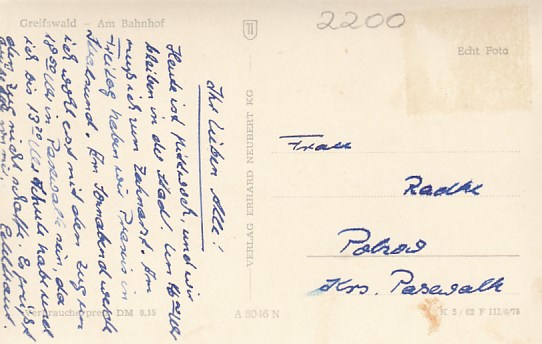 Greifswald – Am Bahnhof
2200
Echt Foto
Ihr lieben Alle!
Heute ist Mittwoch, und wir
bleiben in der Stadt. Um 14 Uhr
muß ich zum Zahnarzt. Am
Freitag haben wir Praxis in
Stralsund. Am Sonnabend werde
ich wohl erst mit dem Zug um
18 Uhr in Pasewalk sein, da
ich bis 13 Uhr Schule habe und
den Zug nicht schaffe. Es grüßt
Frau
Radtke
Polzow
Krs. Pasewalk
VERLAG ERHARD NEUBERT KG
Verbraucherpreis DM 0,15
A 8046 N
K 5/62 F III/6/78